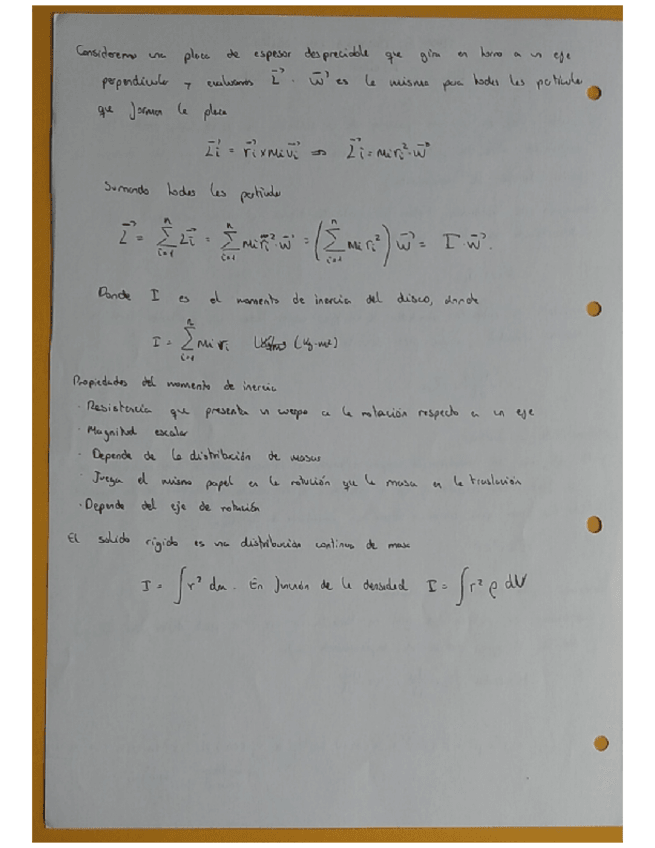 Consideremos una placa de espesor despreciable que gira en torno a un eje
perpendicular y evaluamos L⃗. w⃗ es la misma para todas las partículas
que forman la placa
L⃗i = r⃗i x mi v⃗i ⇒ L⃗i = mi ri² · w⃗
Sumando todas las partículas
L⃗ = ∑ⁿᵢ₌₁ L⃗i = ∑ⁿᵢ₌₁ mi ri² · w⃗ = (∑ⁿᵢ₌₁ mi ri²) w⃗ = I · w⃗.
Donde I es el momento de inercia del disco, donde
I = ∑ⁿᵢ₌₁ mi ri (kg·m²)
Propiedades del momento de inercia
· Resistencia que presenta un cuerpo a la rotación respecto a un eje
· Magnitud escalar
· Depende de la distribución de masas
· Juega el mismo papel en la rotación que la masa en la traslación
· Depende del eje de rotación
El solido rígido es una distribución continua de masa
I = ∫ r² dm. En función de la densidad I = ∫ r² ρ dV